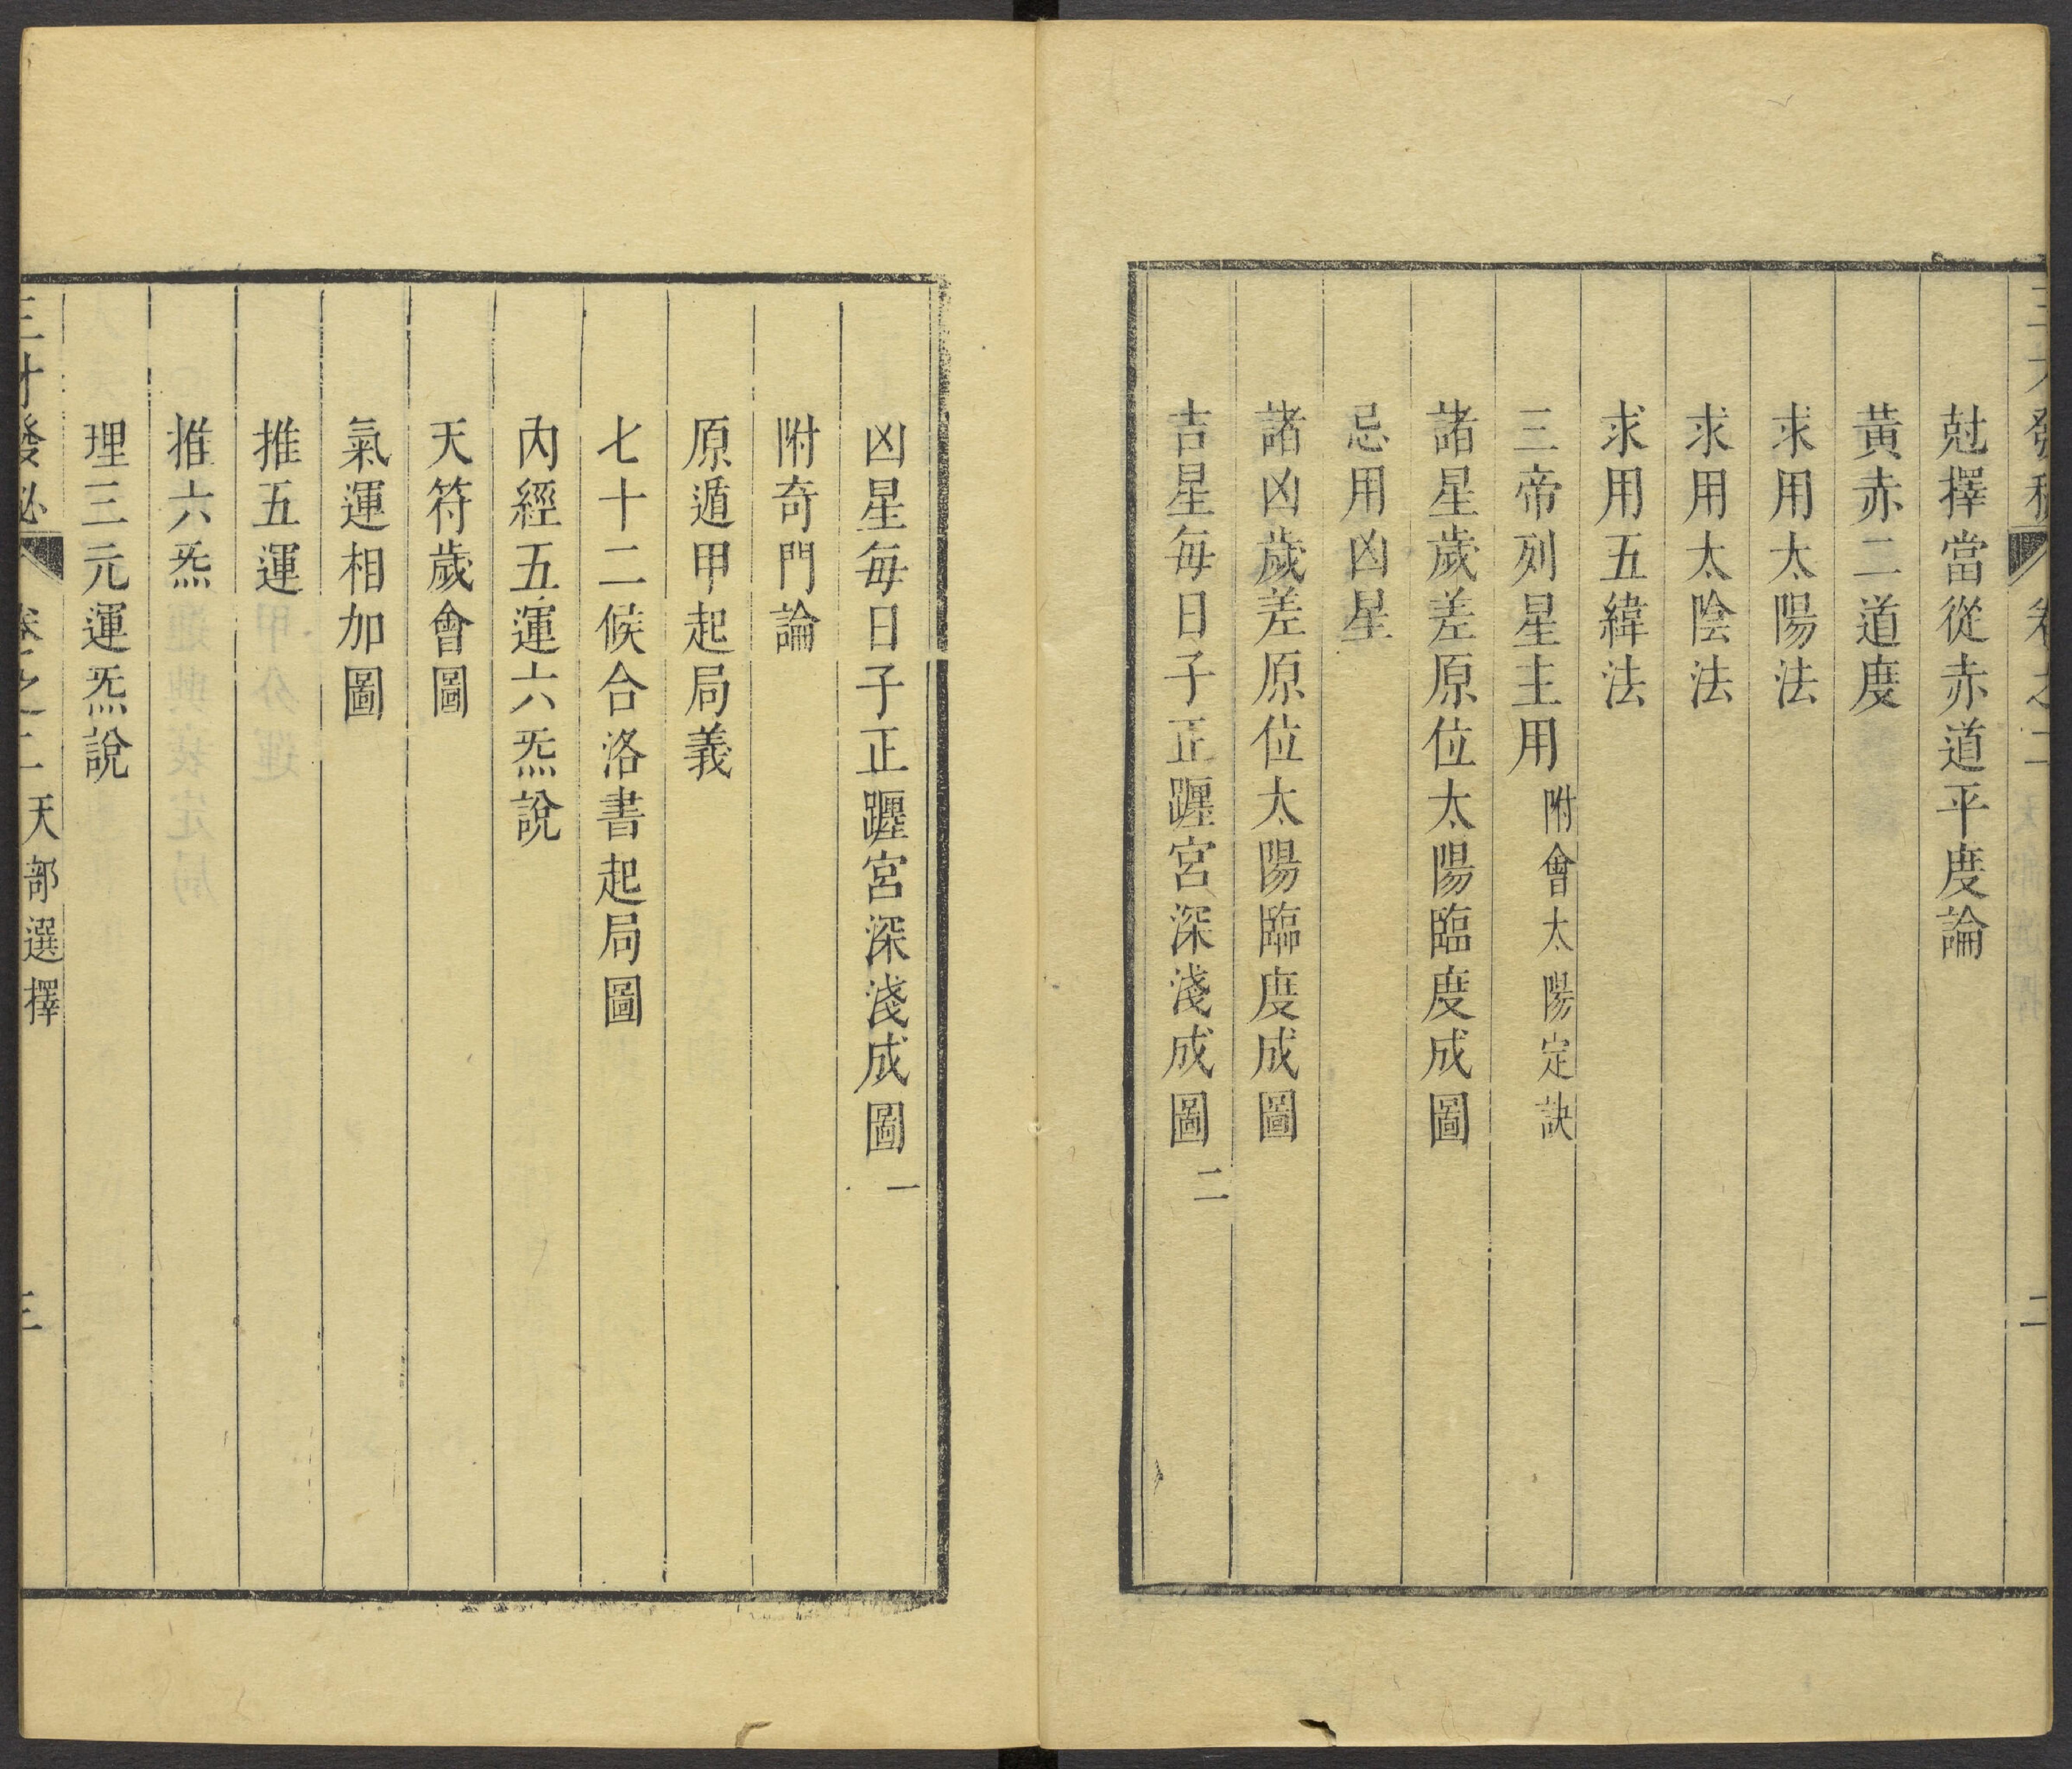 三才發秘 卷之二 天部選擇 二
尅擇當從赤道平度論
黃赤二道度
求用太陽法
求用太陰法
求用五緯法
三帝列星主用 附會太陽定訣
諸星歲差原位太陽臨度成圖
忌用凶星
諸凶歲差原位太陽臨度成圖
吉星每日子正躔宮深淺成圖 二
凶星每日子正躔宮深淺成圖 一
附奇門論
原遁甲起局義
七十二候合洛書起局圖
內經五運六炁說
天符歲會圖
氣運相加圖
推五運
推六炁
理三元運炁說
三才發祕 卷之二 天部選擇 三